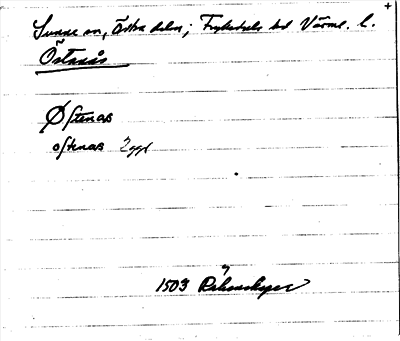 Sunne sn, Östra delen; Fryksdals hd Värml. l.
Östanås
Øftenas
oftenas 2 ggr
1503